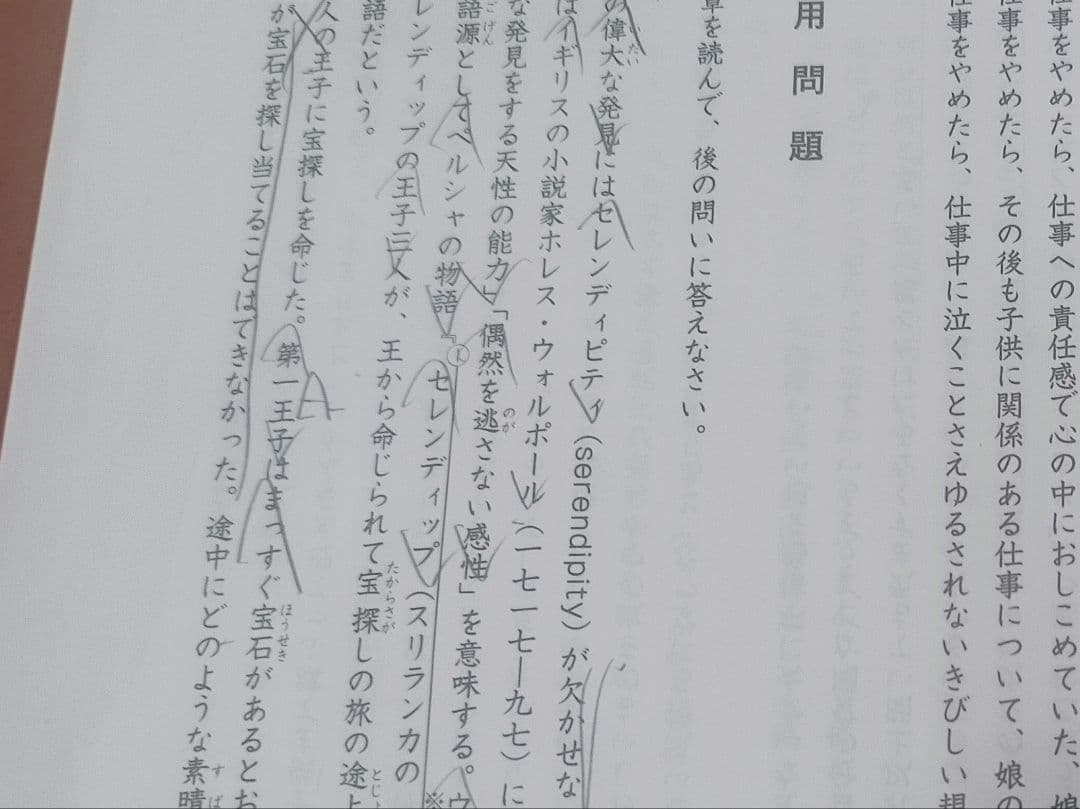 仕事をやめたら、仕事への責任感で心の中におしこめていた、娘
仕事をやめたら、その後も子供に関係のある仕事について、娘の
仕事をやめたら、仕事中に泣くことさえゆるされないきびしい現
用問題
章を読んで、後の問いに答えなさい。
の偉大な発見にはセレンディピティ(serendipity)が欠かせな
はイギリスの小説家ホレス・ウォルポール(一七一七―九七)に
な発見をする天性の能力」「偶然を逃さない感性」を意味する。ウ
語源としてペルシャの物語『セレンディップ(スリランカの
レンディップの王子三人が、王から命じられて宝探しの旅の途
語だという。
人の王子に宝探しを命じた。第一王子はまっすぐ宝石があるとお
が宝石を探し当てることはできなかった。途中にどのような素晴